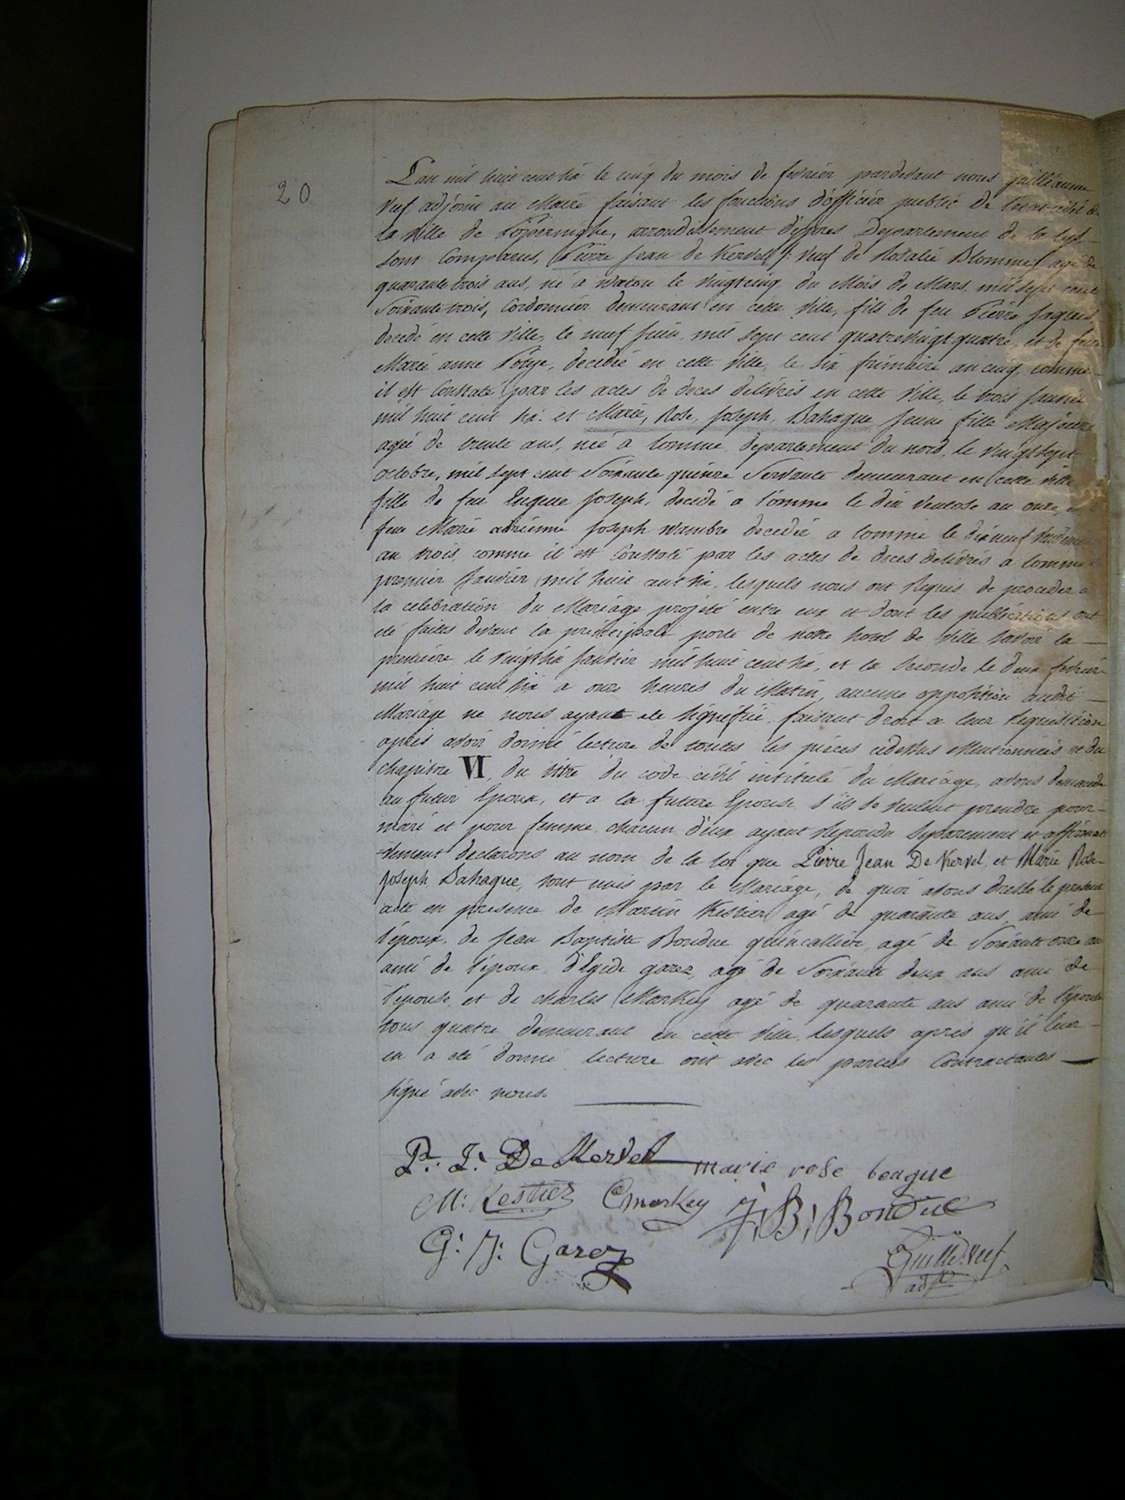 20
L'an mil huit cent six le cinq du mois de fevrier pardevant nous guilleaume
Veuf adjoint au Maire faisant les fonctions d'officier public de l'etat civil de
la ville de Poperinghe, arrondissement d'ypres Departement de la Lys
sont comparus, Pierre Jean de Kervel veuf de Rosalie Blomme agé de
quarante trois ans, né a Watou le vingtcinq du Mois de Mars mil sept cent
Soixante trois, Cordonnier demeurant en cette ville, fils de feu Pierre Jaques
decedé en cette ville, le neuf juin mil sept cent quatrevingt quatre, et de feue
Marie anne Potye, decedée en cette ville le six frimaire an cinq comme
il est constaté par les actes de deces delivrés en cette ville, le trois janvier
mil huit cent six. et Marie, Rose, Joseph, Bahague jeune fille Majeure
agée de trente ans, née a Lomme departement du nord le vingt sept
octobre, mil sept cent Soixante quinze Servante demeurant en cette ville
fille de feu Eugene Joseph, decedé a Lomme le dix ventose an onze, et
feu Marie adrienne Joseph Wambre decedée a Lomme le dixneuf
an trois comme il est constaté par les actes de deces delivrés a Lomme
premier janvier mil huit cent six, lesquels nous ont requis de proceder a
la celebration du Mariage projeté entre eux et dont les publications ont
été faites devant la principale porte de notre hotel de ville savoir la
premiere le vingtsix janvier mil huit cent six, et la seconde le deux fevrier
mil huit cent six a onze heures du Matin, aucune opposition audit
Mariage ne nous ayant ete signifiée, faisant droit a leur requisition
après avoir donné lecture de toutes les pièces cidessus Mentionnées et du
chapitre VI du titre du code civil intitulé du Mariage, avons demandé
au futur Epoux, et a la future Epouse s'ils se veulent prendre pour
mari et pour femme chacun d'eux ayant repondu separement et affirmati-
vement declarons au nom de la loi que Pierre Jean De Kervel, et Marie Rose
Joseph Bahague, sont unis par le Mariage, de quoi avons dressé le present
acte en presence de Martin Lestiez agé de quarante ans ami de
l'epoux, de Jean Baptiste Bondue quincallier, agé de Soixante onze ans
ami de l'epoux, d'Egide garez, agé de Soixante deux ans ami de
l'épouse et de charles Morkey agé de quarante ans ami de l'epouse
tous quatre demeurant en cette ville, lesquels après qu'il leur
en a eté donné lecture ont avec les parties Contractantes
signé avec nous.
Pr. J: De Kervel marie rose beague
M: Lestiez CMorkey J: B: Bondue
G: J: Garez
Guille. Veuf
adjt